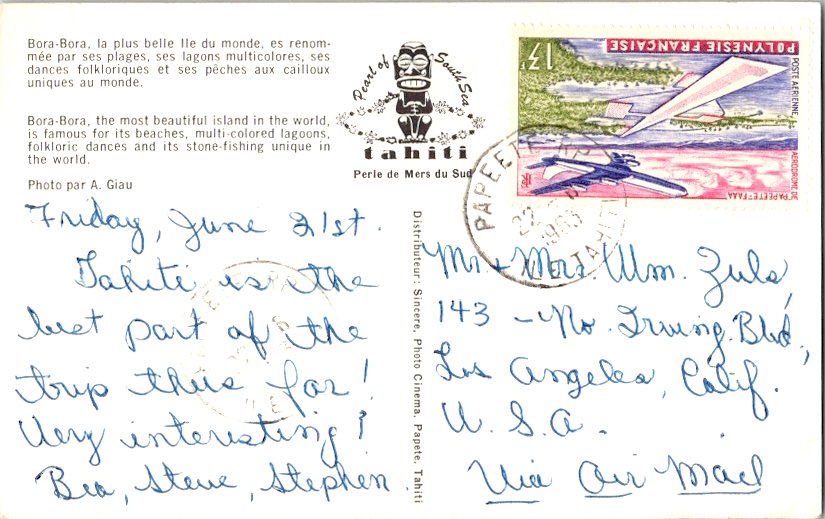 Bora-Bora, la plus belle Ile du monde, es renom-
mée par ses plages, ses lagons multicolores, ses
dances folkloriques et ses pêches aux cailloux
uniques au monde.
Bora-Bora, the most beautiful island in the world,
is famous for its beaches, multi-colored lagoons,
folkloric dances and its stone-fishing unique in
the world.
Photo par A. Giau
Pearl of South Sea
tahiti
Perle de Mers du Sud
13F
POLYNESIE FRANÇAISE
POSTE AERIENNE
AERODROME DE
PAPEETE-FAAA
PAPEETE
22
ILE TAHITI
Friday, June 21st.
Tahiti is the
best part of the
trip thus far!
Very interesting!
Bea, Steve, Stephen
Distributeur : Sincere, Photo Cinema, Papete, Tahiti
Mr. + Mrs. Wm. Zula,
143 - No. Irving Blvd.,
Los Angeles, Calif.
U. S. A.
Via Air Mail